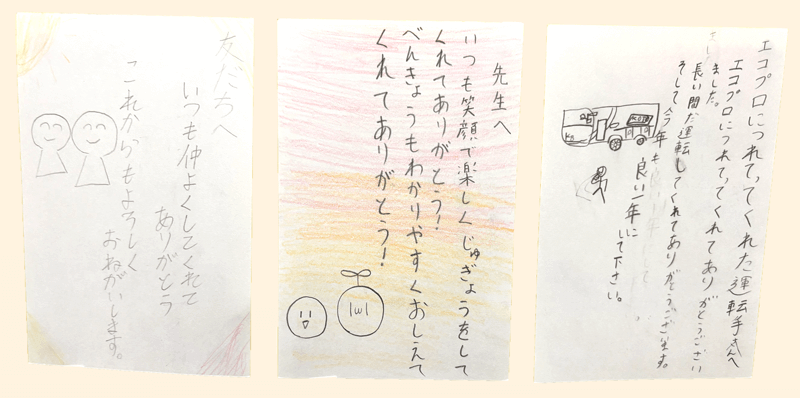 友だちへ
いつも仲よくしてくれて
ありがとう
これからもよろしく
おねがいします。
先生へ
いつも笑顔で楽しくじゅぎょうをして
くれてありがとう！
べんきょうもわかりやすくおしえて
くれてありがとう！
エコプロにつれてってくれた運転手さんへ
エコプロにつれてってくれてありがとうござい
ました。
長い間だ運転してくれてありがとうございます。
そして今年も良い一年に
して下さい。